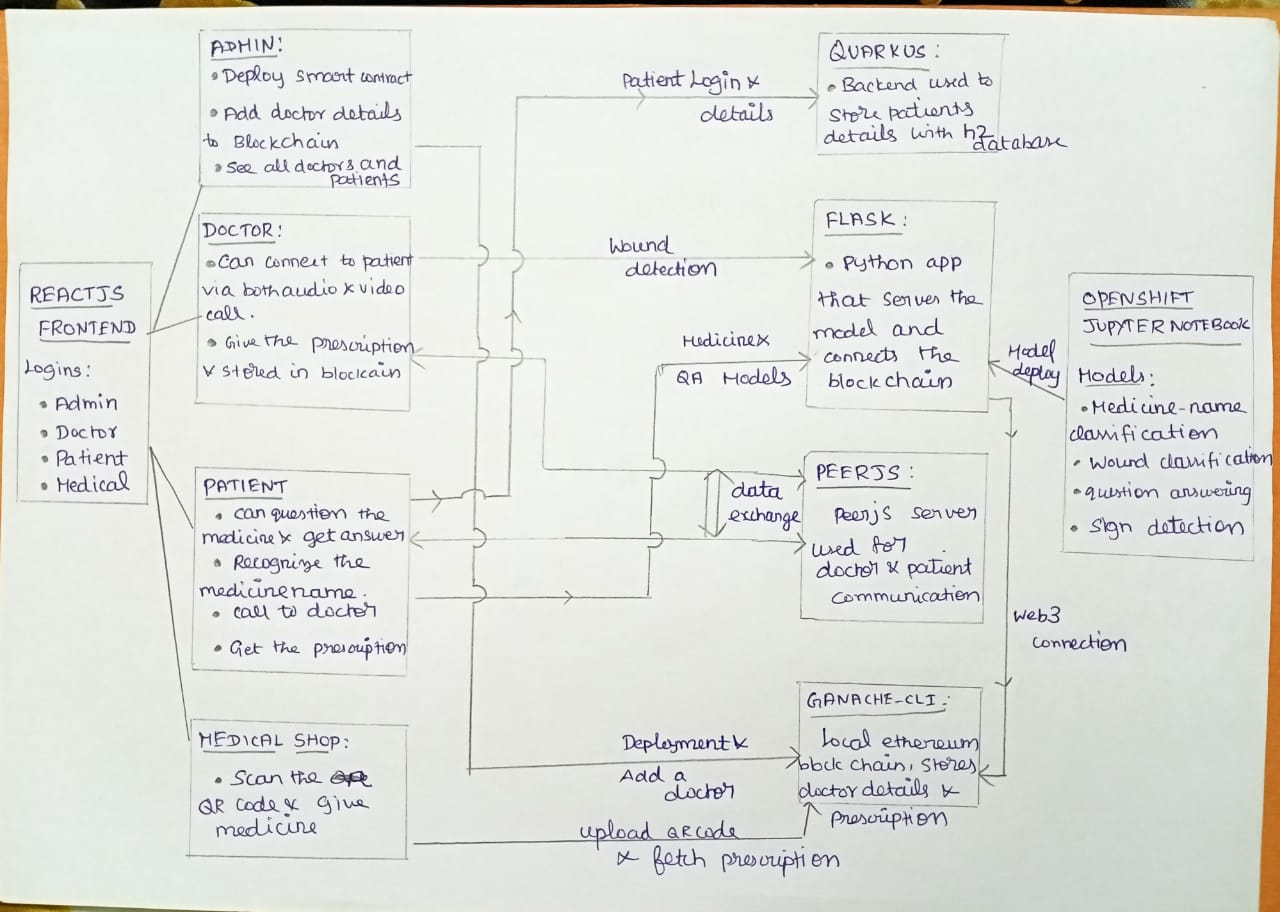 ADMIN:
• Deploy smart contract
• Add doctor details
to Blockchain
• See all doctors and
patients
DOCTOR:
• Can connect to patient
via both audio & video
call.
• Give the prescription
& stored in blockcain
REACTJS
FRONTEND
Logins:
• Admin
• Doctor
• Patient
• Medical
PATIENT
• can question the
medicine & get answer
• Recognize the
medicine name.
• call to doctor
• Get the prescription
MEDICAL SHOP:
• Scan the
QR code & give
medicine
Patient Login &
details
Wound
detection
Medicine &
QA Models
data
exchange
Deployment &
Add a
doctor
upload QR code
& fetch prescription
QUARKUS:
• Backend used to
store patients
details with h2
database
FLASK:
• Python app
that server the
model and
connects the
blockchain
PEERJS:
Peerjs server
used for
doctor & patient
communication
GANACHE-CLI:
Local ethereum
block chain, stores
doctor details &
prescription
Model
deploy
Web3
connection
OPENSHIFT
JUPYTER NOTEBOOK
Models:
• Medicine-name
classification
• Wound classification
• question answering
• Sign detection